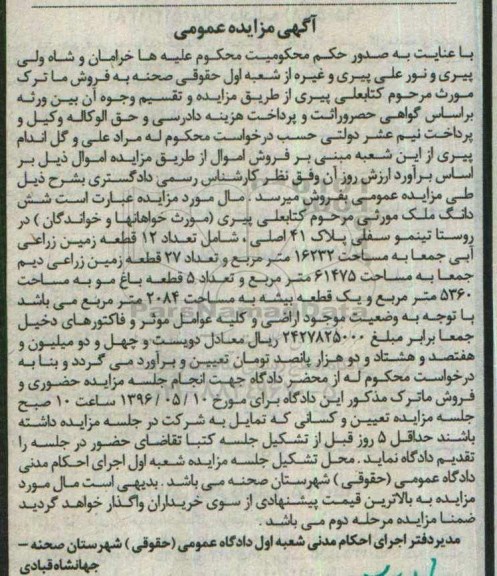 آگهی مزایده عمومی
با عنایت به صدور حکم محکومیت محکوم علیه ها خرامان و شاه ولی
پیری و نور علی پیری و غیره از شعبه اول حقوقی صحنه به فروش ما ترک
مورث مرحوم کتابعلی پیری از طریق مزایده و تقسیم وجوه آن بین ورثه
براساس گواهی حصروراثت و پرداخت هزینه دادرسی و حق الوکاله وکیل و
پرداخت نیم عشر دولتی حسب درخواست محکوم له مراد علی و گل اندام
پیری از این شعبه مبنی بر فروش اموال از طریق مزایده اموال ذیل بر
اساس برآورد ارزش روز آن وفق نظر کارشناس رسمی دادگستری بشرح ذیل
طی مزایده عمومی بفروش میرسد . مال مورد مزایده عبارت است شش
دانگ ملک مورثی مرحوم کتابعلی پیری (مورث خواهانها و خواندگان ) در
روستا تینمو سفلی پلاک ۴۱ اصلی ، شامل تعداد ۱۲ قطعه زمین زراعی
آبی جمعا به مساحت ۱۶۲۳۲ متر مربع و تعداد ۲۷ قطعه زمین زراعی دیم
جمعا به مساحت ۶۱۴۷۵ متر مربع و تعداد ۵ قطعه باغ مو به مساحت
۵۳۶۰ متر مربع و یک قطعه بیشه به مساحت ۲۰۸۴ متر مربع می باشد
با توجه به وضعیت موجود اراضی و کلیه عوامل موثر و فاکتورهای دخیل
جمعا برابر مبلغ ۲۴۲۷۸۲۵۰۰۰ ریال معادل دویست و چهل و دو میلیون و
هفتصد و هشتاد و دو هزار پانصد تومان تعیین و برآورد می گردد و بنا به
درخواست محکوم له از محضر دادگاه جهت انجام جلسه مزایده حضوری و
فروش ماترک مذکور این دادگاه برای مورخ ۱۰ /۰۵ /۱۳۹۶ ساعت ۱۰ صبح
جلسه مزایده تعیین و کسانی که تمایل به شرکت در جلسه مزایده داشته
باشند حداقل ۵ روز قبل از تشکیل جلسه کتبا تقاضای حضور در جلسه را
تقدیم دادگاه نماید . محل تشکیل جلسه مزایده شعبه اول اجرای احکام مدنی
دادگاه عمومی (حقوقی ) شهرستان صحنه می باشد . بدیهی است مال مورد
مزایده به بالاترین قیمت پیشنهادی از سوی خریداران واگذار خواهد گردید
ضمنا مزایده مرحله دوم می باشد .
مدیردفتر اجرای احکام مدنی شعبه اول دادگاه عمومی (حقوقی ) شهرستان صحنه –
جهانشاه قبادی
ParsNamadData